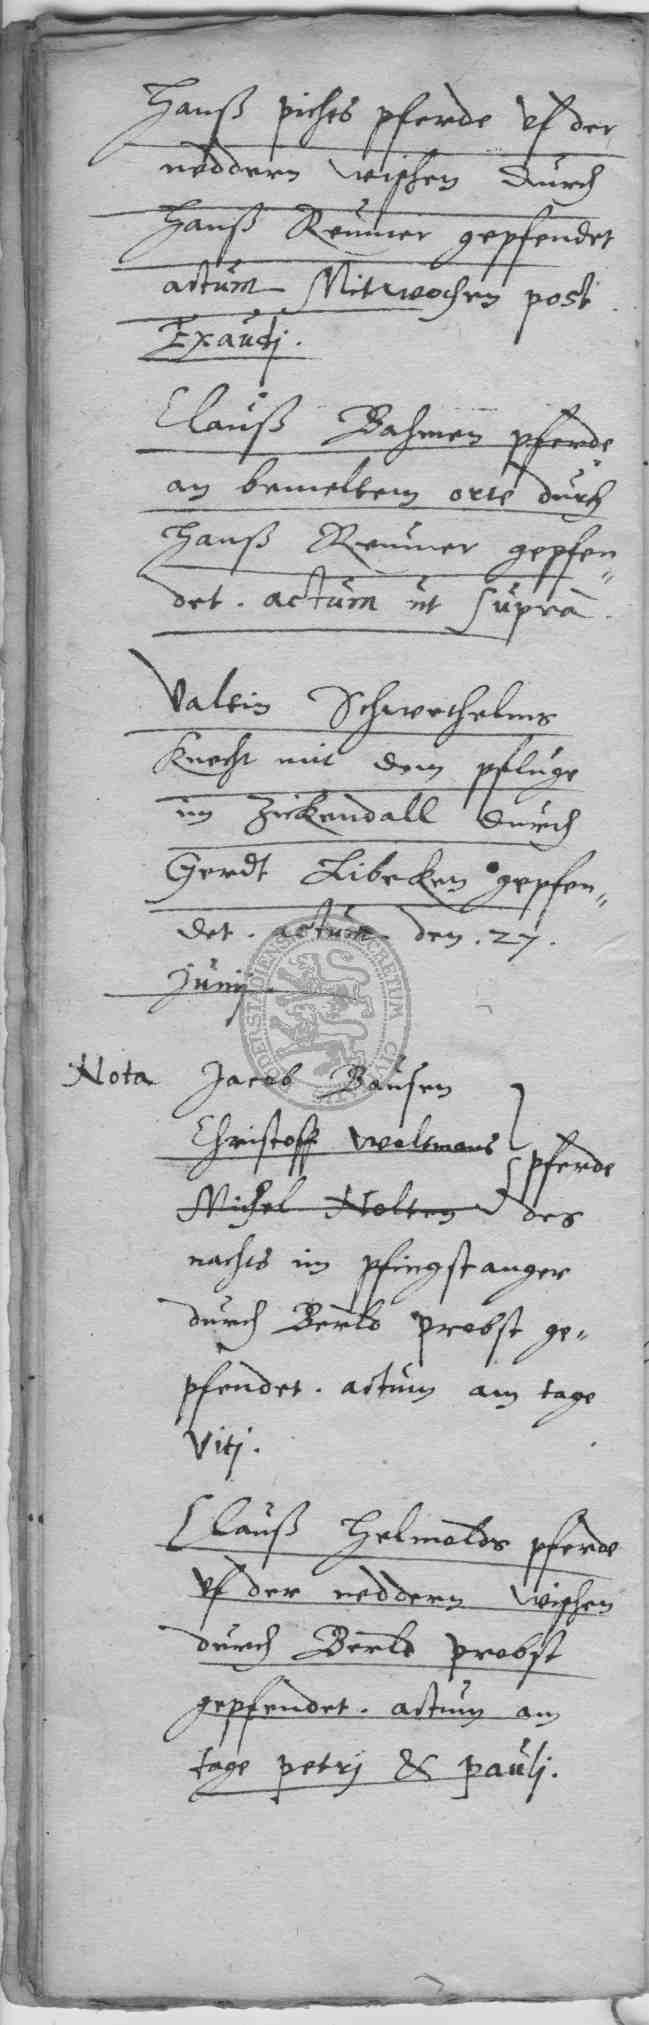 Hanß pichts pferde vf der
neddern wischen durch
Hanß Reumer gepfendet
actum Mitwochen post
Exaudj.
Clauß Bahmen pferde
an bemeltem orte durch
Hanß Reumer gepfen„
det. actum ut supra.
Valtin Schwethelms
knecht mit dem pfluge
im Zickendall durch
Gerdt Libecken gepfen„
det. actum den. 27.
Junij.
Nota Jacob Bausen
Christoff woltmans } pferde
Michel Nolten des
nachts im pfingstanger
durch Berld probst ge„
pfendet. actum am tage
Vitj.
Clauß Helmolds pferde
vf der neddern wischen
durch Berld probst
gepfendet. actum am
tage petrj & paulj.